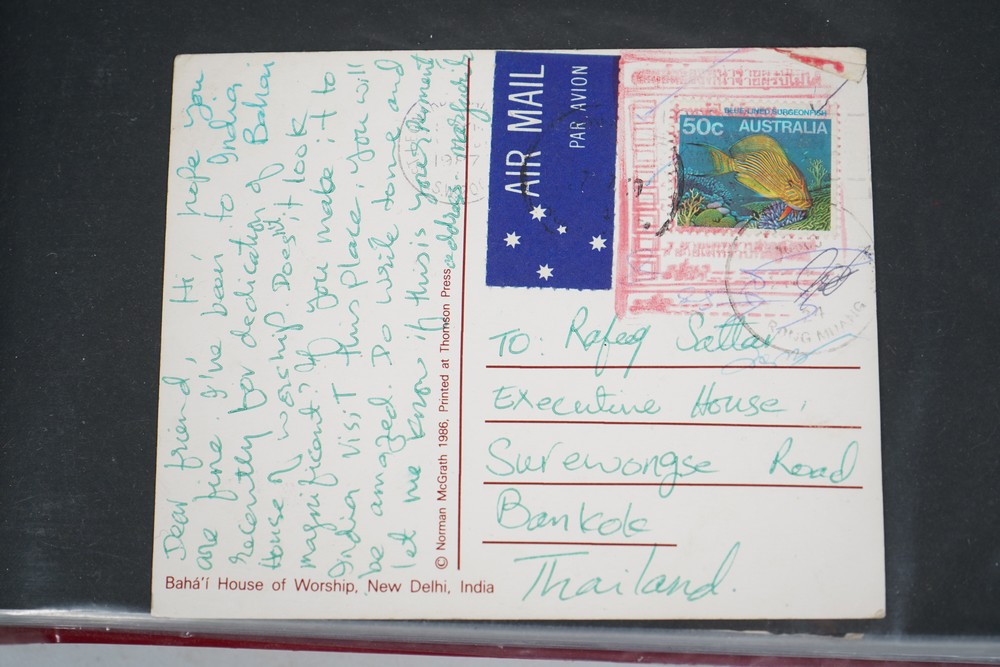 Dear friend, Hi, hope you
are fine. I've been to India
recently for dedication of Bahai
House of worship. Does it look
magnificent? If you make it to
India visit this place, you will
be amazed. Do write some and
let me know if this is your permanent
address -
© Norman McGrath 1986, Printed at Thomson Press
Bahá'í House of Worship, New Delhi, India
AIR MAIL
PAR AVION
BLUE-LINED SURGEONFISH
50c AUSTRALIA
1987
TO: Rafeq Sattar
Executive House,
Surewongse Road
Bankok
Thailand.